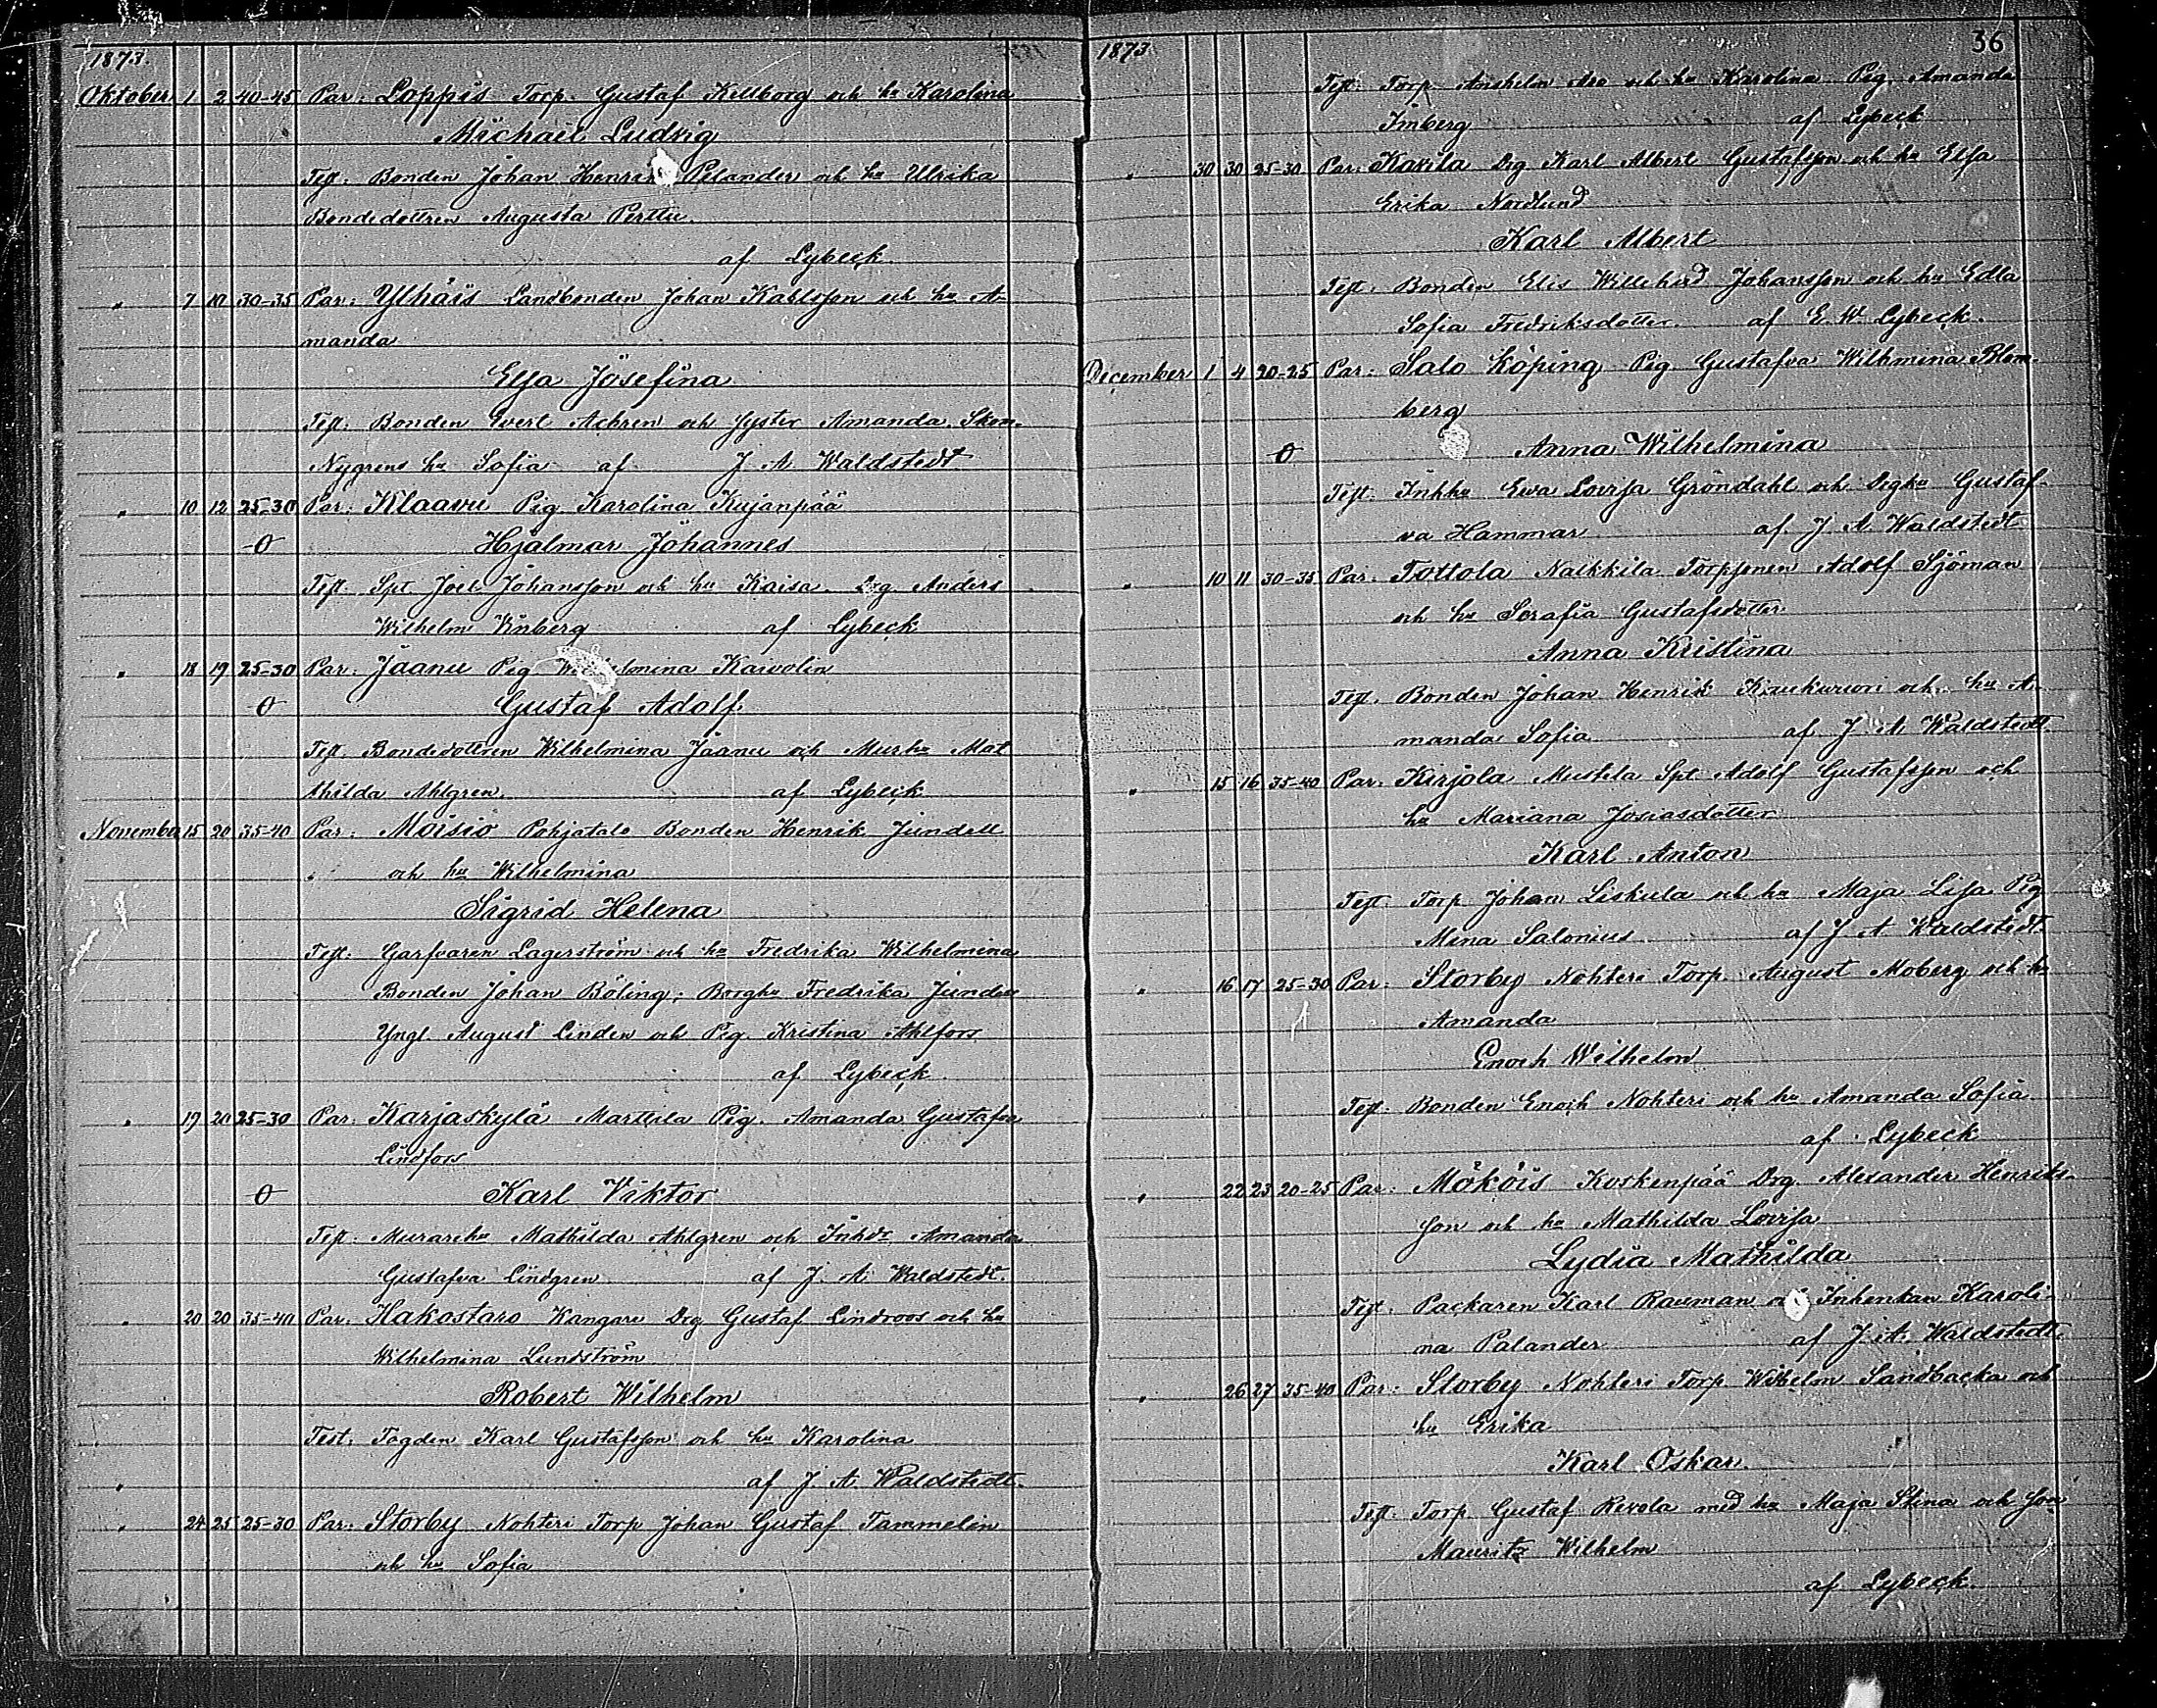 1873.
Oktober 1 2 40-45 Par: Loppis Torp. Gustaf Killborg och hu Karolina
Michael Ludvig
Test: Bonden Johan Henrik Pelander och hu Ullrika
Bondedottren Augusta Perttu
af Lybeck
" 7 10 30-35 Par: Ylhäis Landbonden Johan Karlsson och hu A-
manda
Elsa Josefina
Test: Bonden Evert Achren och syster Amanda. Skom.
Nygrens hu Sofia af J A Waldstedt
" 10 12 25-30 Par: Klaavu Pig. Karolina Kujanpää
-0 Hjalmar Johannes
Test: Spt. Joel Johansson och hu Kaisa. Drg. Anders
Wilhelm Vinberg af Lybeck
" 18 19 25-30 Par: Jaanu Pig Wilhelmina Karvolin
0 Gustaf Adolf
Test. Bondedottren Wilhelmina Jaanu och Murhu Mat
thilda Ahlgren. af Lybeck
November 15 20 35-40 Par: Moisio Pohjatalo Bonden Henrik Jundell
och hu Wilhelmina
Sigrid Helena
Test: Garfvaren Lagerström och hu Fredrika Wilhelmina
Bonden Johan Böling; Borghu Fredrika
Yngl. August Linden och Pig. Kristina Ahlfors
af Lybeck
" 19 20 25-30 Par: Karjaskylä Marttila Pig. Amanda Gustafva
Lindfors
0 Karl Viktor
Test: Murarehu Mathilda Ahlgren och Amanda
Gustafva Lindgren af J. A. Waldstedt.
" 20 20 35-40 Par: Hakostaro Kangare Drg Gustaf Lindroos och hu
Wilhelmina Lundström
Robert Wilhelm
Test: Karl Gustafsson och hu Karolina
" af J. A. Waldstedt.
" 24 25 25-30 Par: Storby Nohteri Torp Johan Gustaf Tammelin
och hu Sofia
1873
36
Test: Torp. Anshelm Aro och hu Karolina Pig. Amanda
Imberg af Lybeck
" 30 30 25-30 Par: Kavila Drg Karl Albert Gustafsson och hu Elsa
Erika Nordlund
Karl Albert
Test: Bonden Elis Willehad Johansson och hu Edla
Sofia Fredriksdotter. af E. W. Lybeck.
December 1 4 20-25 Par: Salo Köping Pig Gustafva Wilhmina Blom-
berg
0 Anna Wilhelmina
Test. Inhhu Eva Lovisa Gröndahl och Drghu Gustaf-
va Hammar af. J. A. Waldstedt
" 10 11 30-35 Par. Tottola Naikkila Torpsonen Adolf Sjöman
och hu Serafia Gustafsdotter
Anna Kristina
Test. Bonden Johan Henrik Kaukurivori och hu A-
manda Sofia af J A Waldstedt
" 15 16 35-40 Par. Kirjola Mustila Spt. Adolf Gustafsson och
hu Mariana Josiasdotter
Karl Anton
Test. Torp Johan Liskula och hu Maja Lisa Pig
Mina Salonius af J A Waldstedt.
" 16 17 25-30 Par. Storby Nohteri Torp. August Moberg och hu
Amanda
Enoch Wilhelm
Test: Bonden Enoch Nohteri och hu Amanda Sofia
af Lybeck
" 22 23 20-25 Par: Mököis Koskenpää Drg. Alexander Henriks-
son och hu Mathilda Lovisa
Lydia Mathilda
Test: Packaren Karl Rauman och Inhenkan Karoli-
na Palander af J. A. Waldstedt.
" 26 27 35-40 Par: Storby Nohteri Torp Wilhelm Sandbacka och
hu Erika
Karl Oskar
Test: Torp. Gustaf Revola med hu Maja Stina och son
Mauritz Wilhelm
af Lybeck.